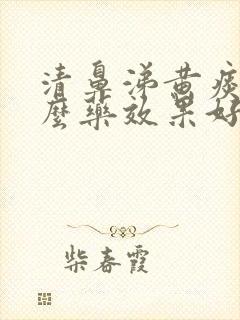 清鼻涕黄痰
麼藥效果好
柴春霞